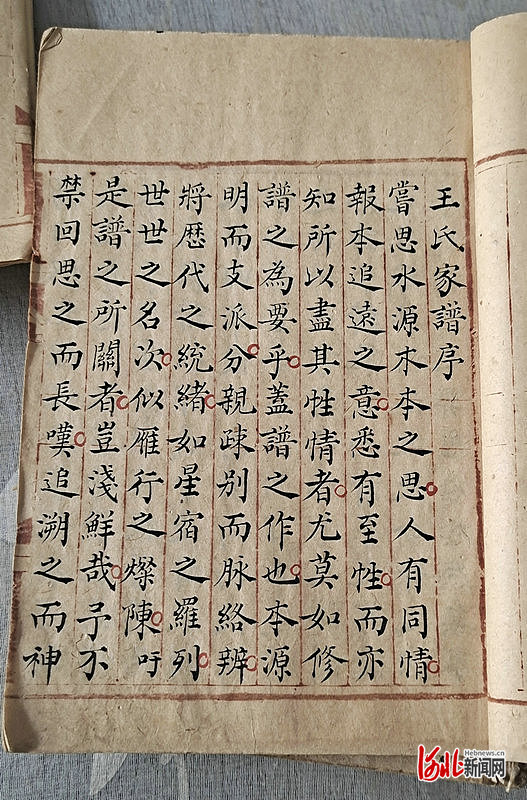 王氏家譜序
嘗思水源木本之思人有同情
報本追遠之意悉有至性而亦
知所以盡其性情者尤莫如修
譜之為要乎蓋譜之作也本源
明而支派分親疎別而脉絡辨
將歷代之統緒如星宿之羅列
世世之名次似雁行之燦陳吁
是譜之所關者豈淺鮮哉予不
禁回思之而長嘆追溯之而神
河北新闻网
Hebnews.cn